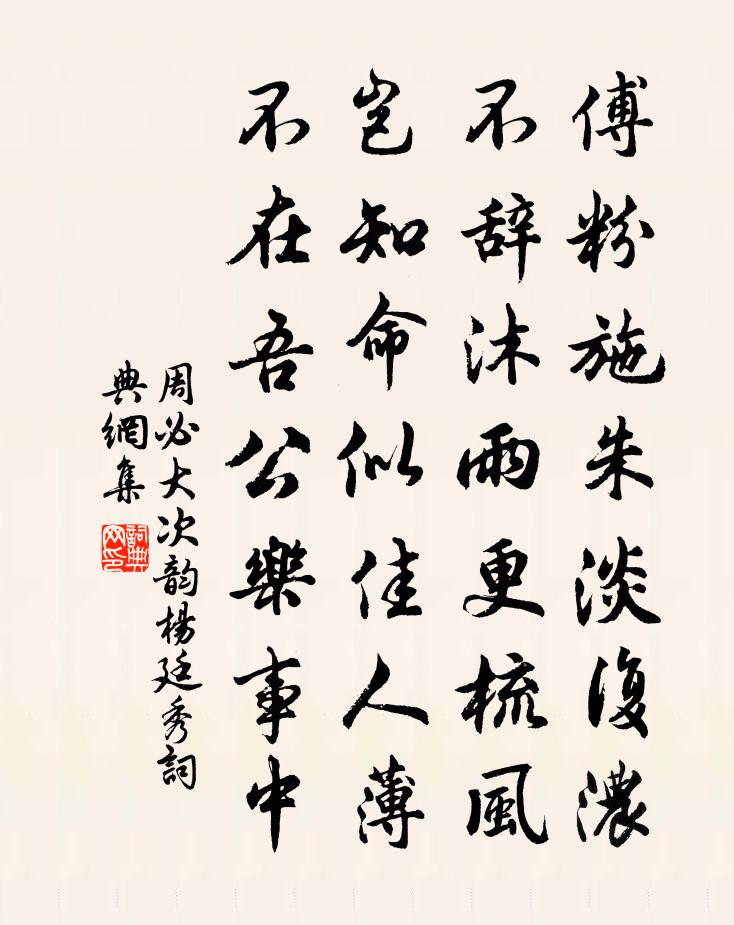 傅粉施朱淡復濃
不辞沐雨更梳風
豈知命似佳人薄
不在吾公樂事中
周必大次韵楊廷秀詞
典網集
詞典网印